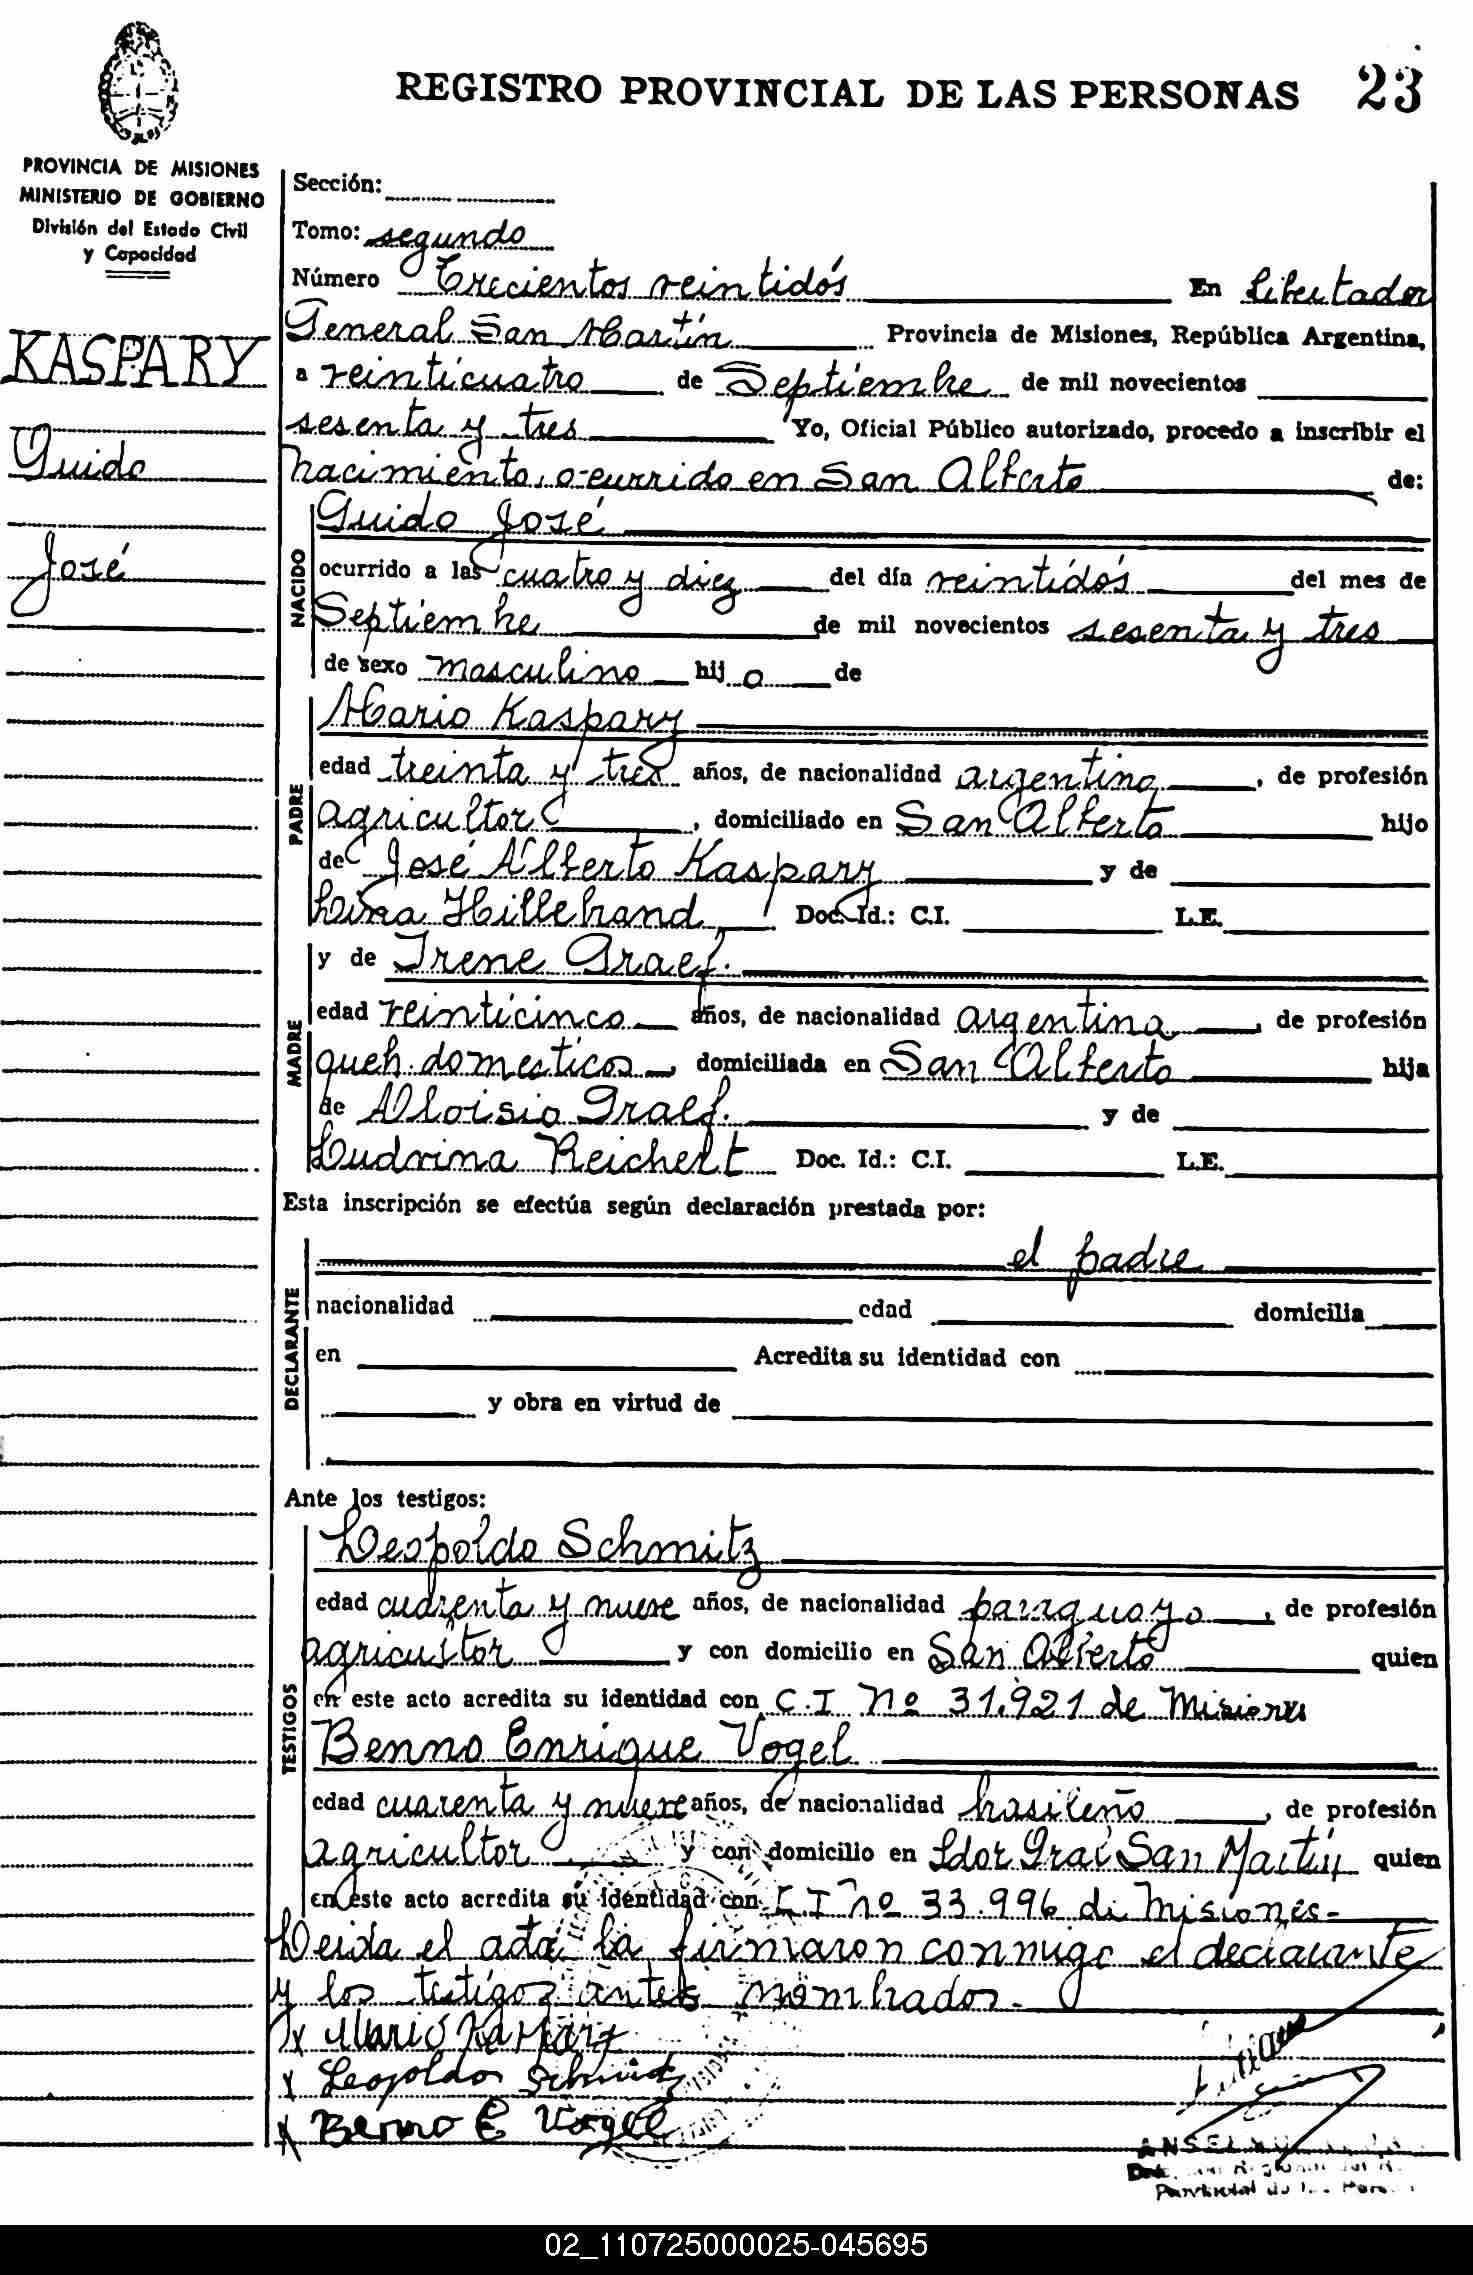 REGISTRO PROVINCIAL DE LAS PERSONAS 23
PROVINCIA DE MISIONES
MINISTERIO DE GOBIERNO
División del Estado Civil
y Capacidad
KASPARY
Guido
José
Sección:
Tomo: segundo
Número Trecientos veintidós En Libertador
General San Martín Provincia de Misiones, República Argentina,
a veinticuatro de Septiembre de mil novecientos
sesenta y tres Yo, Oficial Público autorizado, procedo a inscribir el
nacimiento, ocurrido en San Alberto de:
NACIDO
Guido José
ocurrido a las cuatro y diez del día veintidós del mes de
Septiembre de mil novecientos sesenta y tres
de sexo masculino hij o de
PADRE
Mario Kaspary
edad treinta y tres años, de nacionalidad argentina, de profesión
agricultor, domiciliado en San Alberto hijo
de José Alberto Kaspary y de
Lina Hillebrand Doc. Id.: C.I. L.E.
MADRE
y de Irene Graef.
edad veinticinco años, de nacionalidad argentina, de profesión
queh. domesticos, domiciliada en San Alberto hija
de Aloisio Graef. y de
Ludvina Reichert Doc. Id.: C.I. L.E.
Esta inscripción se efectúa según declaración prestada por:
DECLARANTE
el padre
nacionalidad edad domicilia
en Acredita su identidad con
y obra en virtud de
Ante los testigos:
TESTIGOS
Leopoldo Schmitz
edad cuarenta y nueve años, de nacionalidad paraguayo, de profesión
agricultor y con domicilio en San Alberto quien
en este acto acredita su identidad con C.I Nº 31.921 de Misiones
Benno Enrique Vogel
edad cuarenta y nueve años, de nacionalidad brasileño, de profesión
agricultor y con domicilio en Ldor Gral San Martín quien
en este acto acredita su identidad con C.I nº 33.996 de Misiones-
Leida el acta la firmaron conmigo el declarante
y los testigos antes nombrados.-
x Mario Kaspary
x Leopoldo Schmitz
x Benno E Vogel
02_110725000025-045695